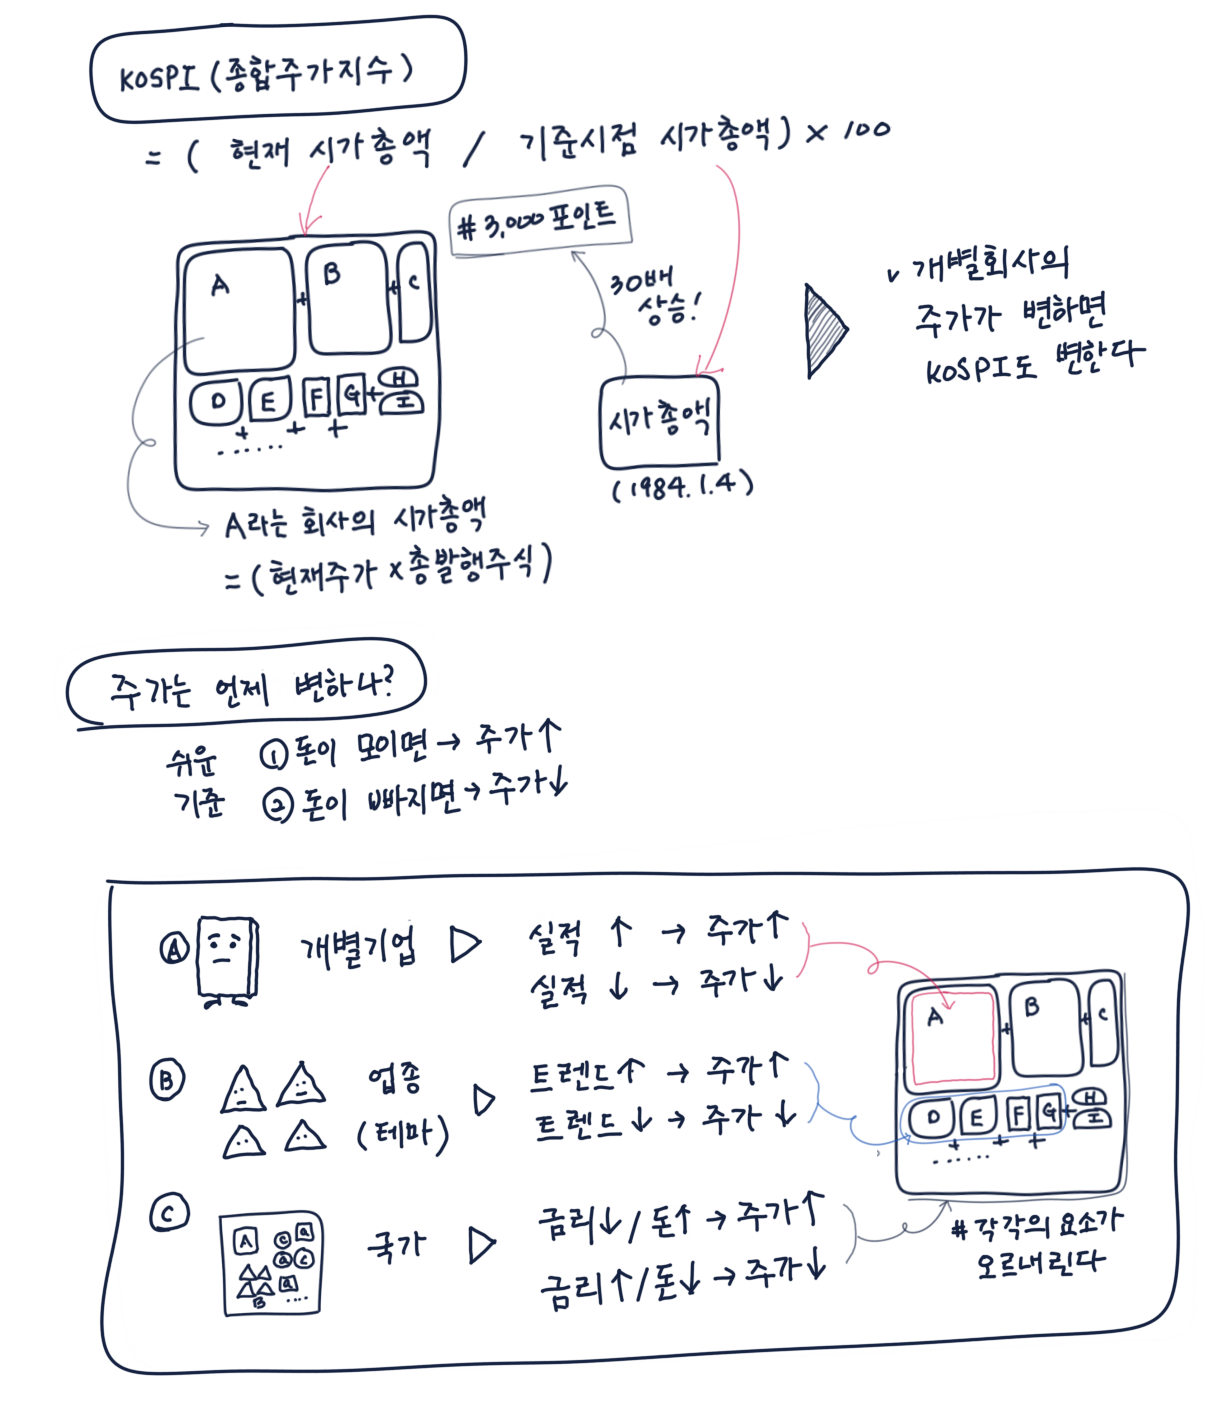 KOSPI (종합주가지수)
= ( 현재 시가총액 / 기준시점 시가총액) × 100
# 3,000 포인트
30배
상승!
A + B + C
D E F G + H I
+ + +
......
시가총액
(1984.1.4)
v 개별회사의
주가가 변하면
KOSPI도 변한다
A라는 회사의 시가총액
= (현재주가 × 총발행주식)
주가는 언제 변하나?
쉬운 ① 돈이 모이면 → 주가↑
기준 ② 돈이 빠지면 → 주가↓
Ⓐ 개별기업 ▷ 실적 ↑ → 주가↑
실적 ↓ → 주가↓
Ⓑ 업종 ▷ 트렌드↑ → 주가↑
(테마) 트렌드↓ → 주가↓
Ⓒ 국가 ▷ 금리↓ / 돈↑ → 주가↑
금리↑ / 돈↓ → 주가↓
A C a
a C
a
B ....
A + B + C
D E F G + H I
+ + +
......
# 각각의 요소가
오르내린다